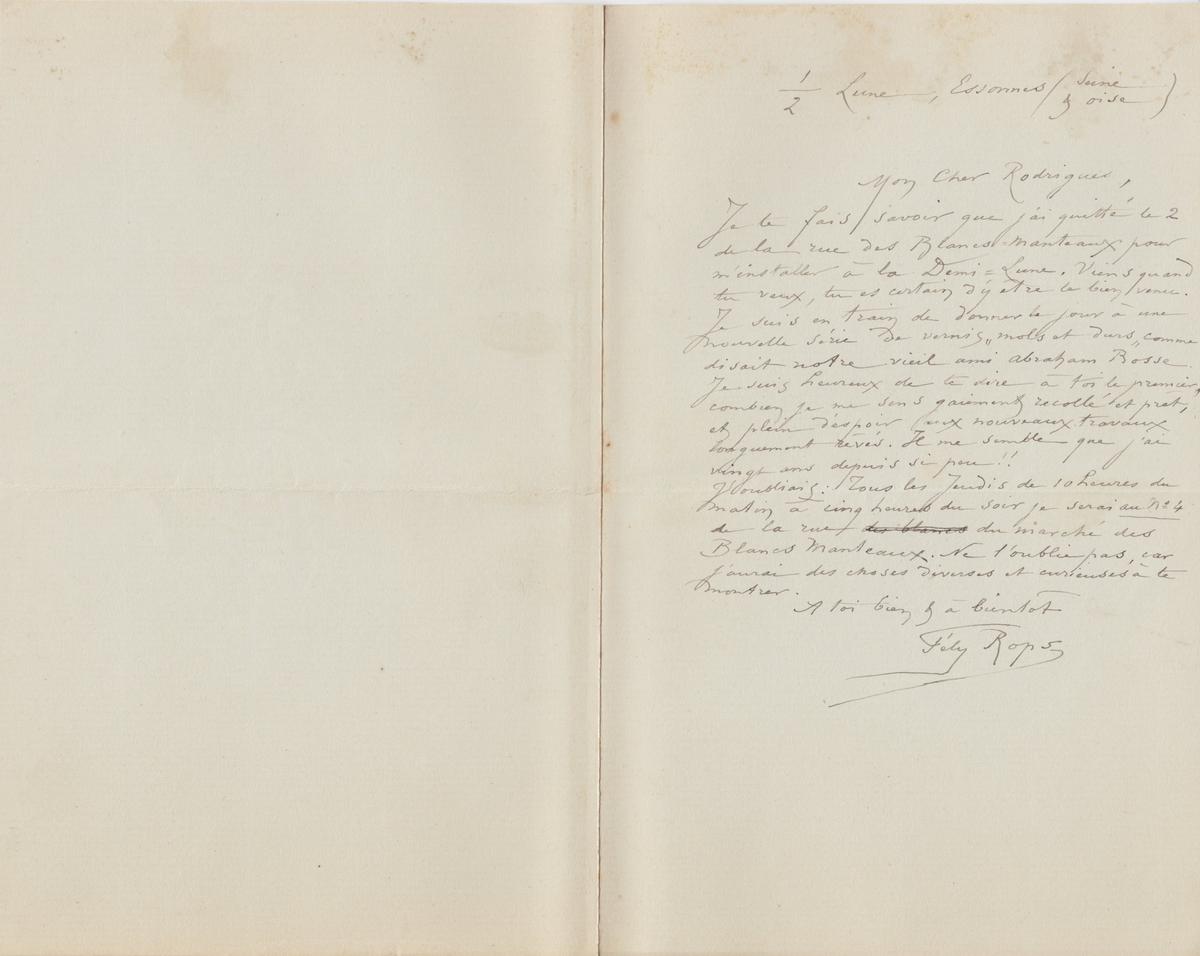 1/2 Lune, Essonnes (Seine
& oise)
Mon Cher Rodrigues,
Je te fais savoir que j'ai quitté le 2
de la rue des Blancs-Manteaux pour
m'installer à la Demi=Lune. Viens quand
tu veux, tu es certain d'y être le bien venu.
Je suis en train de donner le jour à une
nouvelle série de vernis „mols et durs„ comme
disait notre vieil ami abraham Bosse.
Je suis heureux de te dire à toi le premier,
combien je me sens gaiement recollé et prêt,
et plein d'espoir aux nouveaux travaux
longuement rêvés. Il me semble que j'ai
vingt ans depuis si peu !!
J'oubliais : Tous les Jeudis de 10 heures du
matin à cinq heures du soir je serai au No 4
de la rue des blancs du marché des
Blancs Manteaux. Ne l'oublie pas, car
j'aurai des choses diverses et curieuses à te
montrer.
A toi bien & à bientôt
Fély Rops